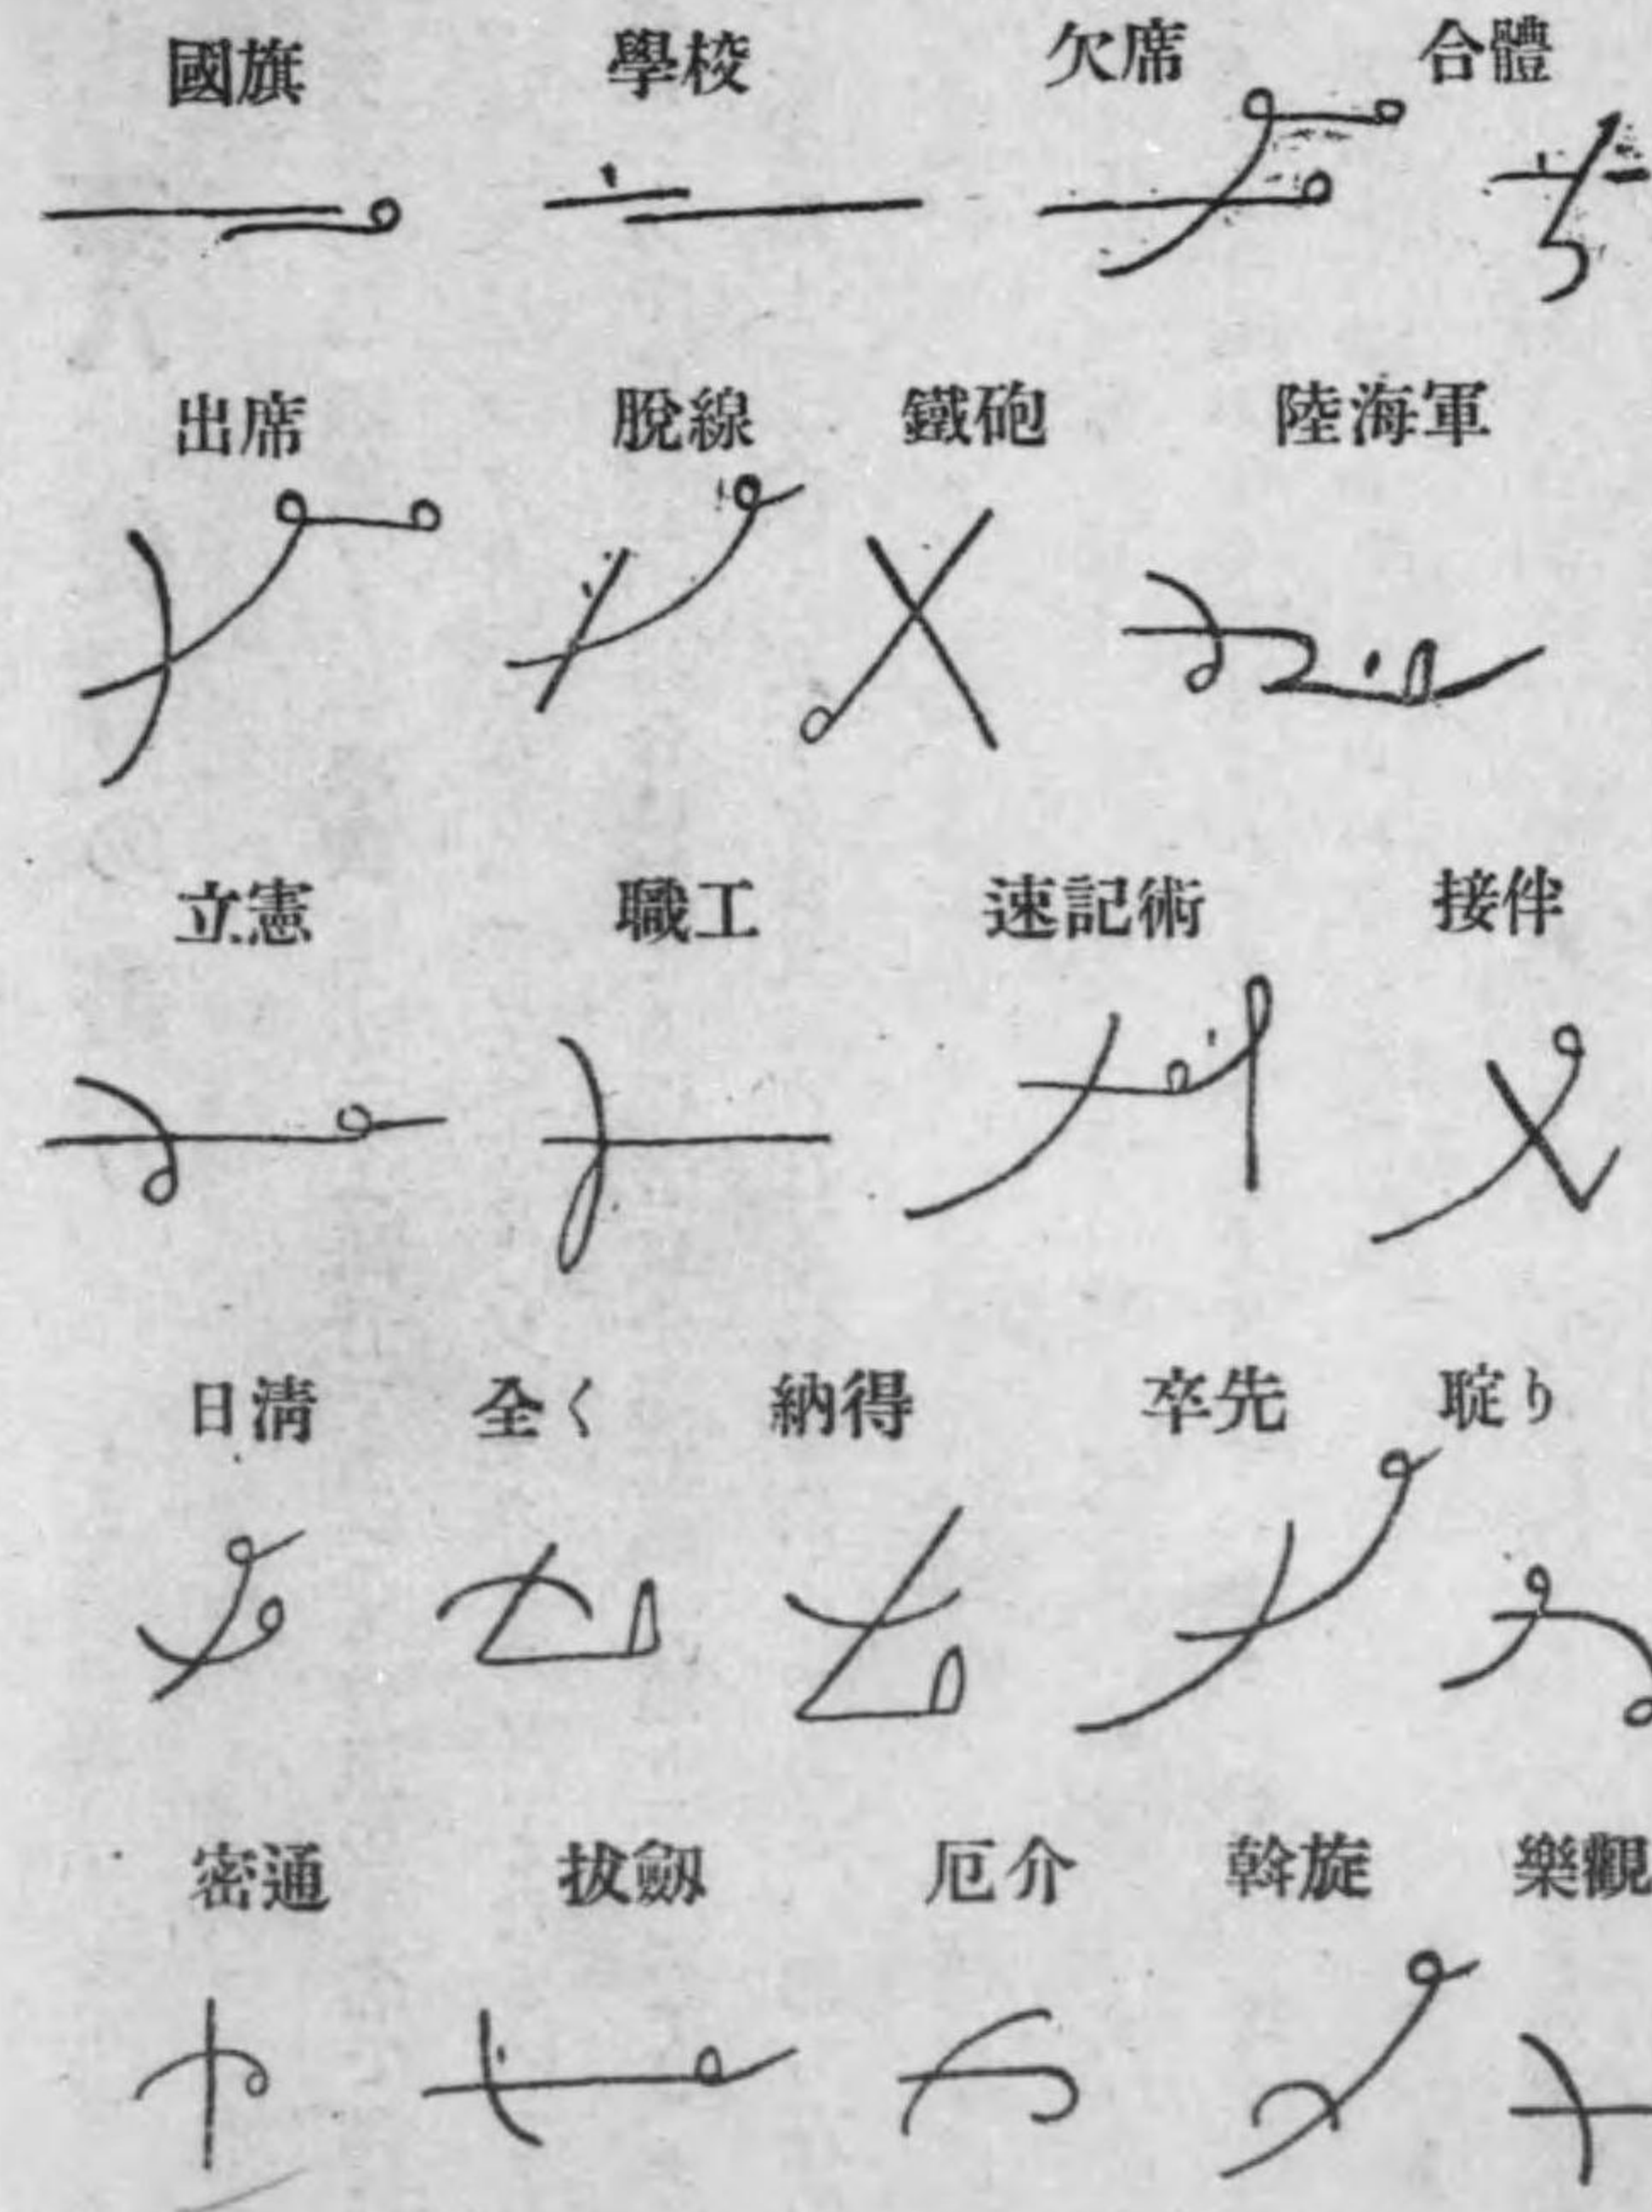 國旗 學校 欠席 合體
出席 脫線 鐵砲 陸海軍
立憲 職工 速記術 接伴
日淸 全く 納得 卒先 聢り
密通 拔劒 厄介 斡旋 樂觀